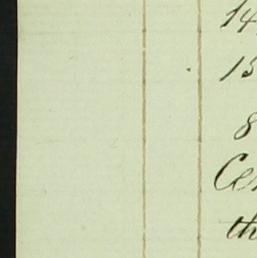 14
15
8
Cen
th